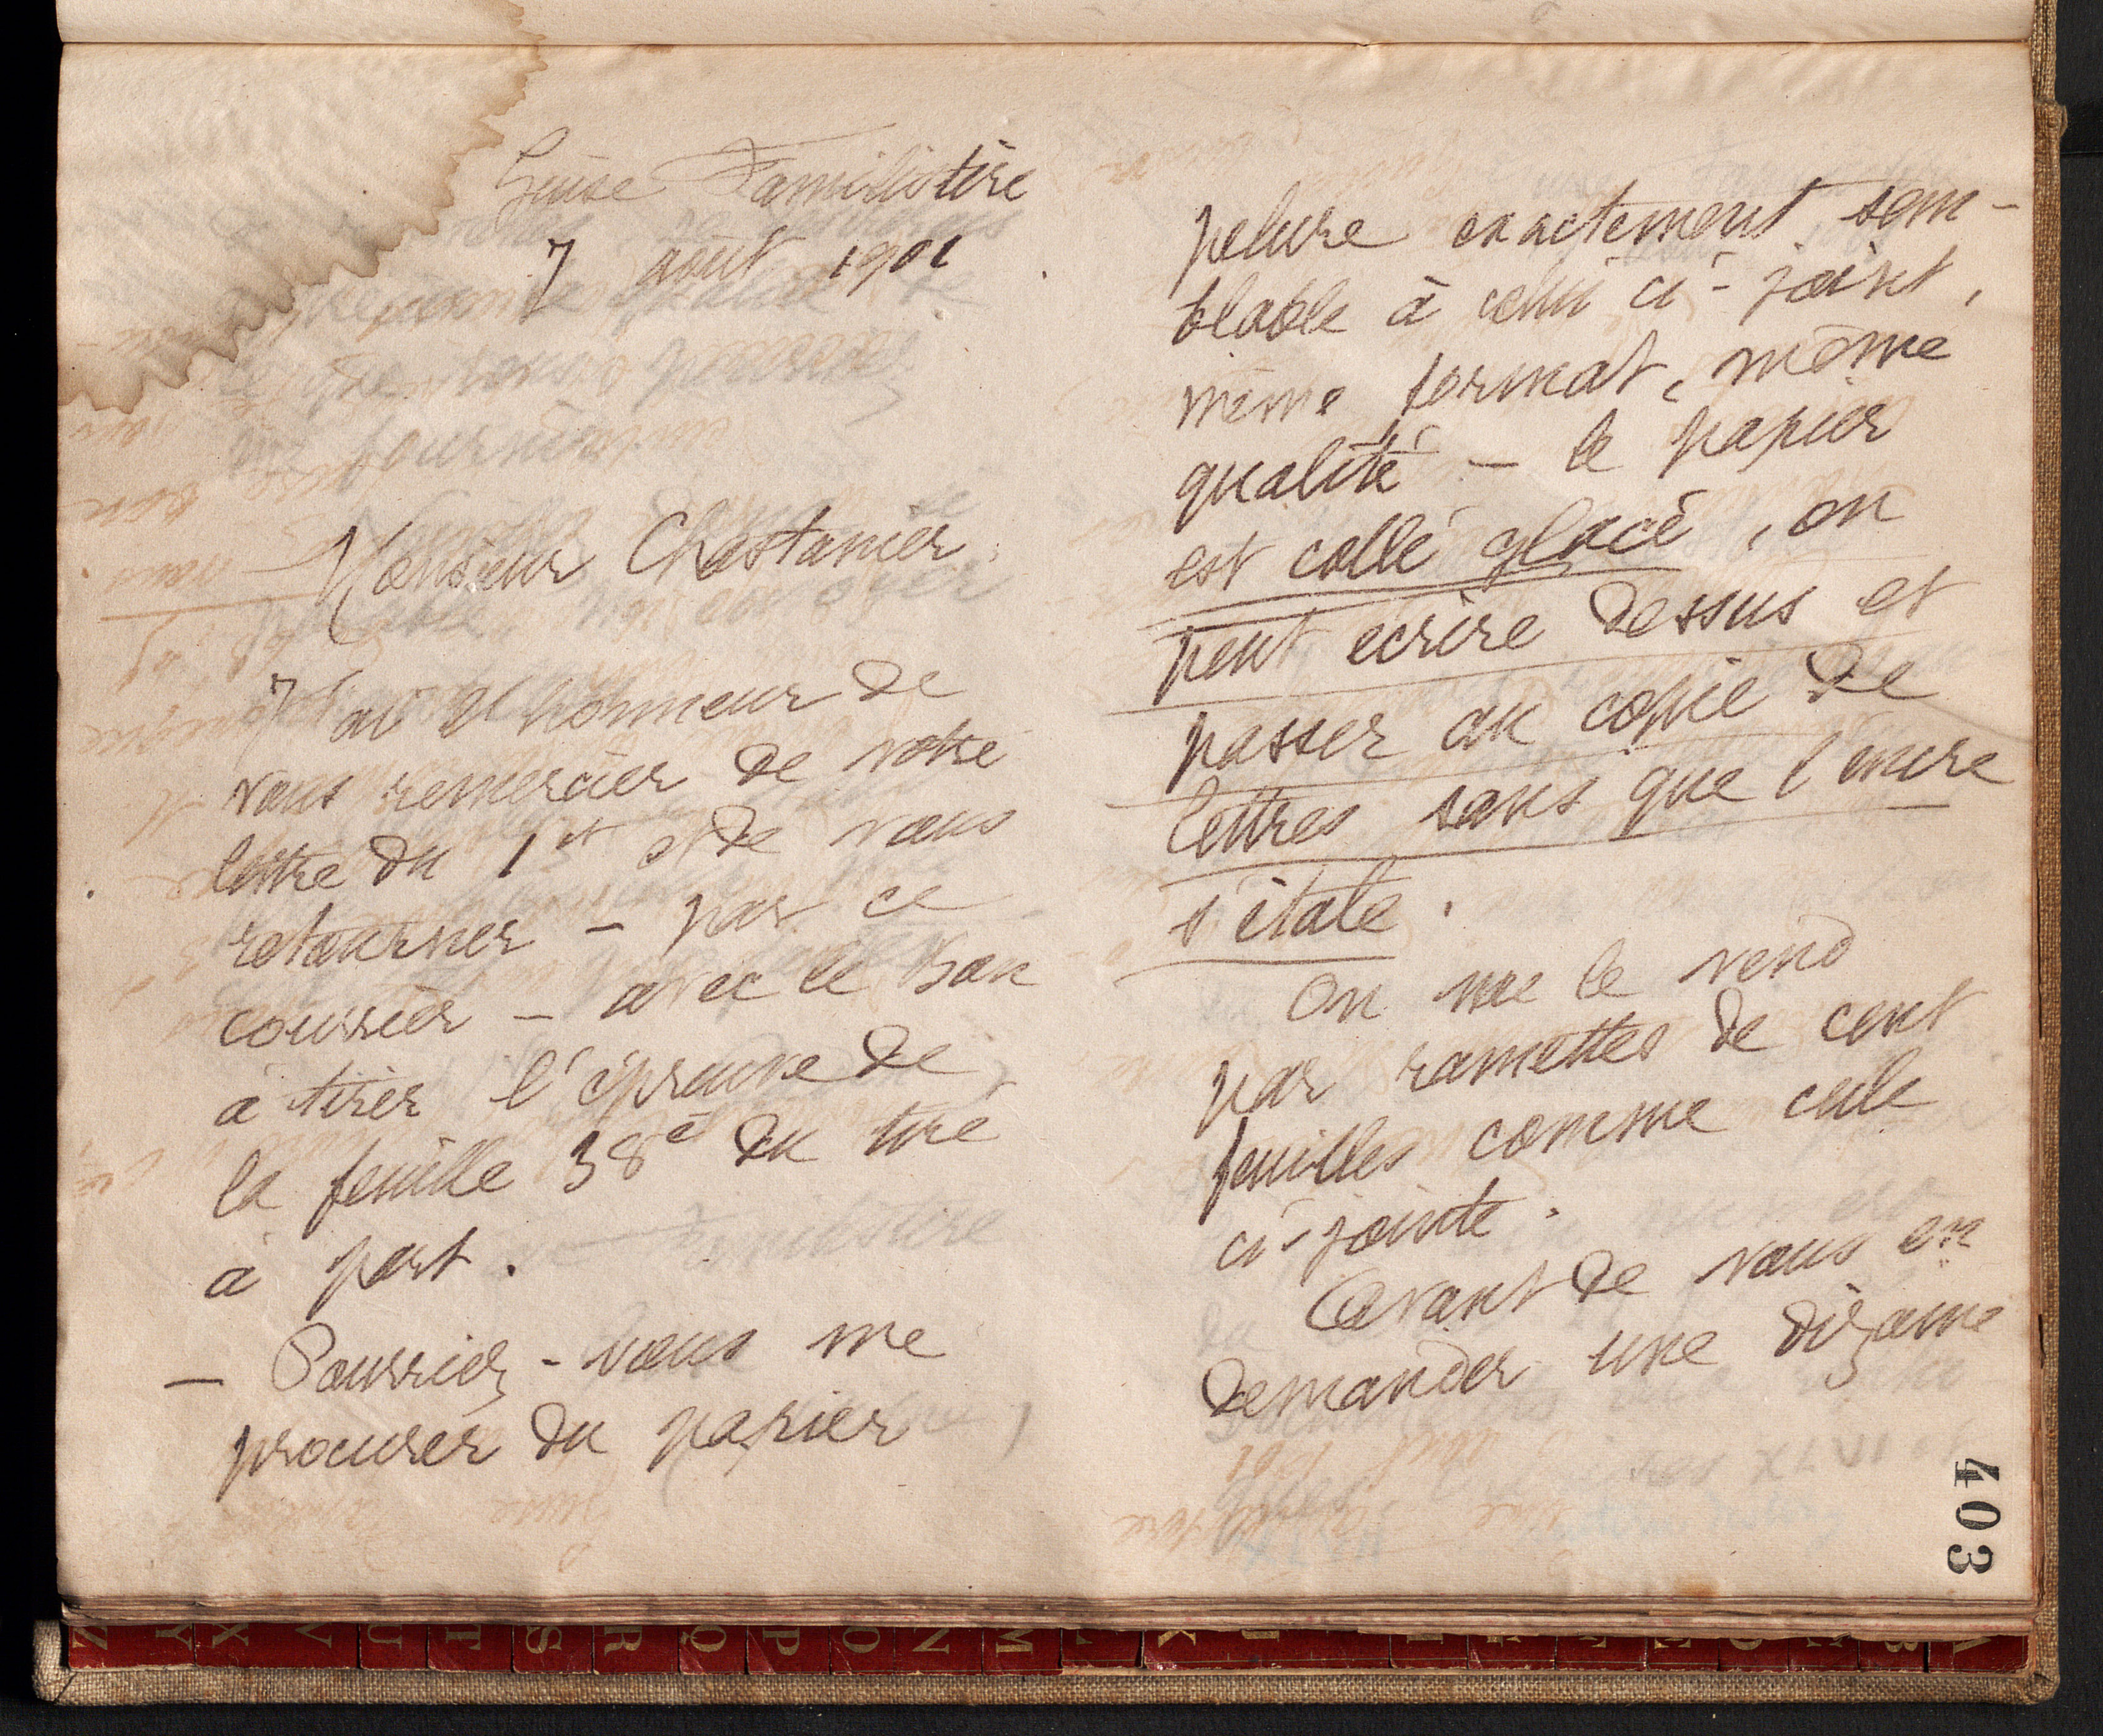 Guise Familistère
7 août 1901
Monsieur Chastanier,
J'ai l'honneur de
vous remercier de votre
lettre du 1er et de vous
retourner - par ce
courrier - avec le bon
à tirer l'épreuve de
la feuille 38e du tiré
à part.
— Pourriez-vous me
procurer du papier
pelure exactement sem-
blable à celui ci-joint,
même format, même
qualité — le papier
est collé glacé, on
peut ecrire dessus et
passer au copie de
lettres sans que l'encre
s'étale.
On me le vend
par ramettes de cent
feuilles comme celle
ci-jointe.
Avant de vous en
demander une dizaine
403
Z Y X V U T S R Q P O N M L K